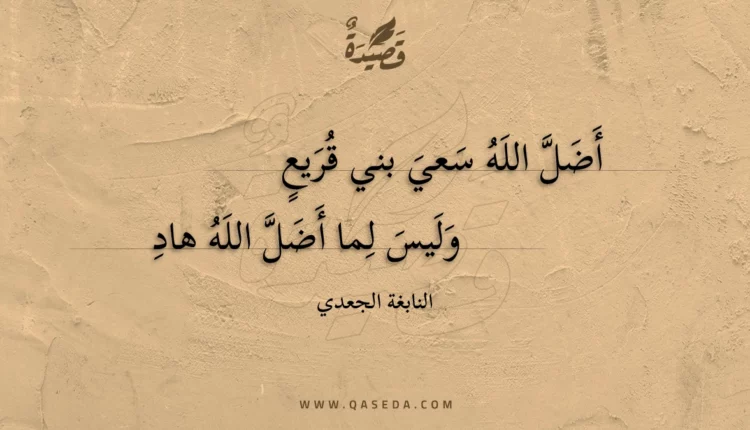 قَصِيدَةٌ
أَضَلَّ اللَهُ سَعيَ بني قُرَيعٍ
وَلَيسَ لِما أَضَلَّ اللَهُ هادِ
النابغة الجعدي
WWW.QASEDA.COM